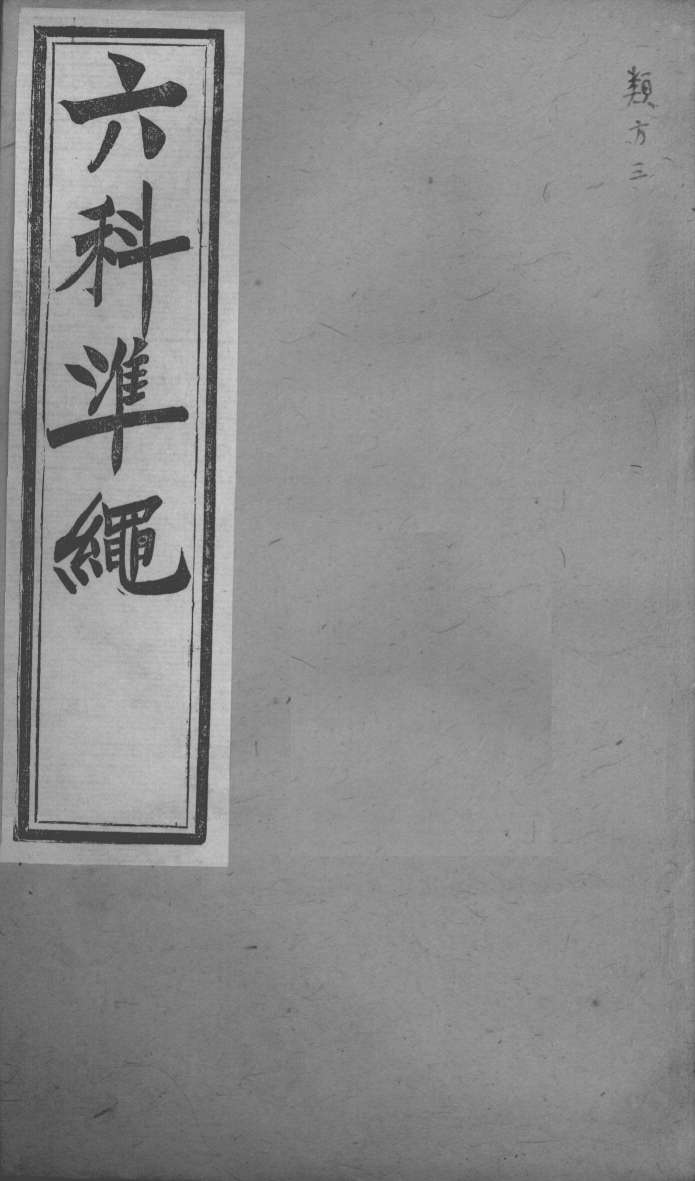 類方三
六科準繩